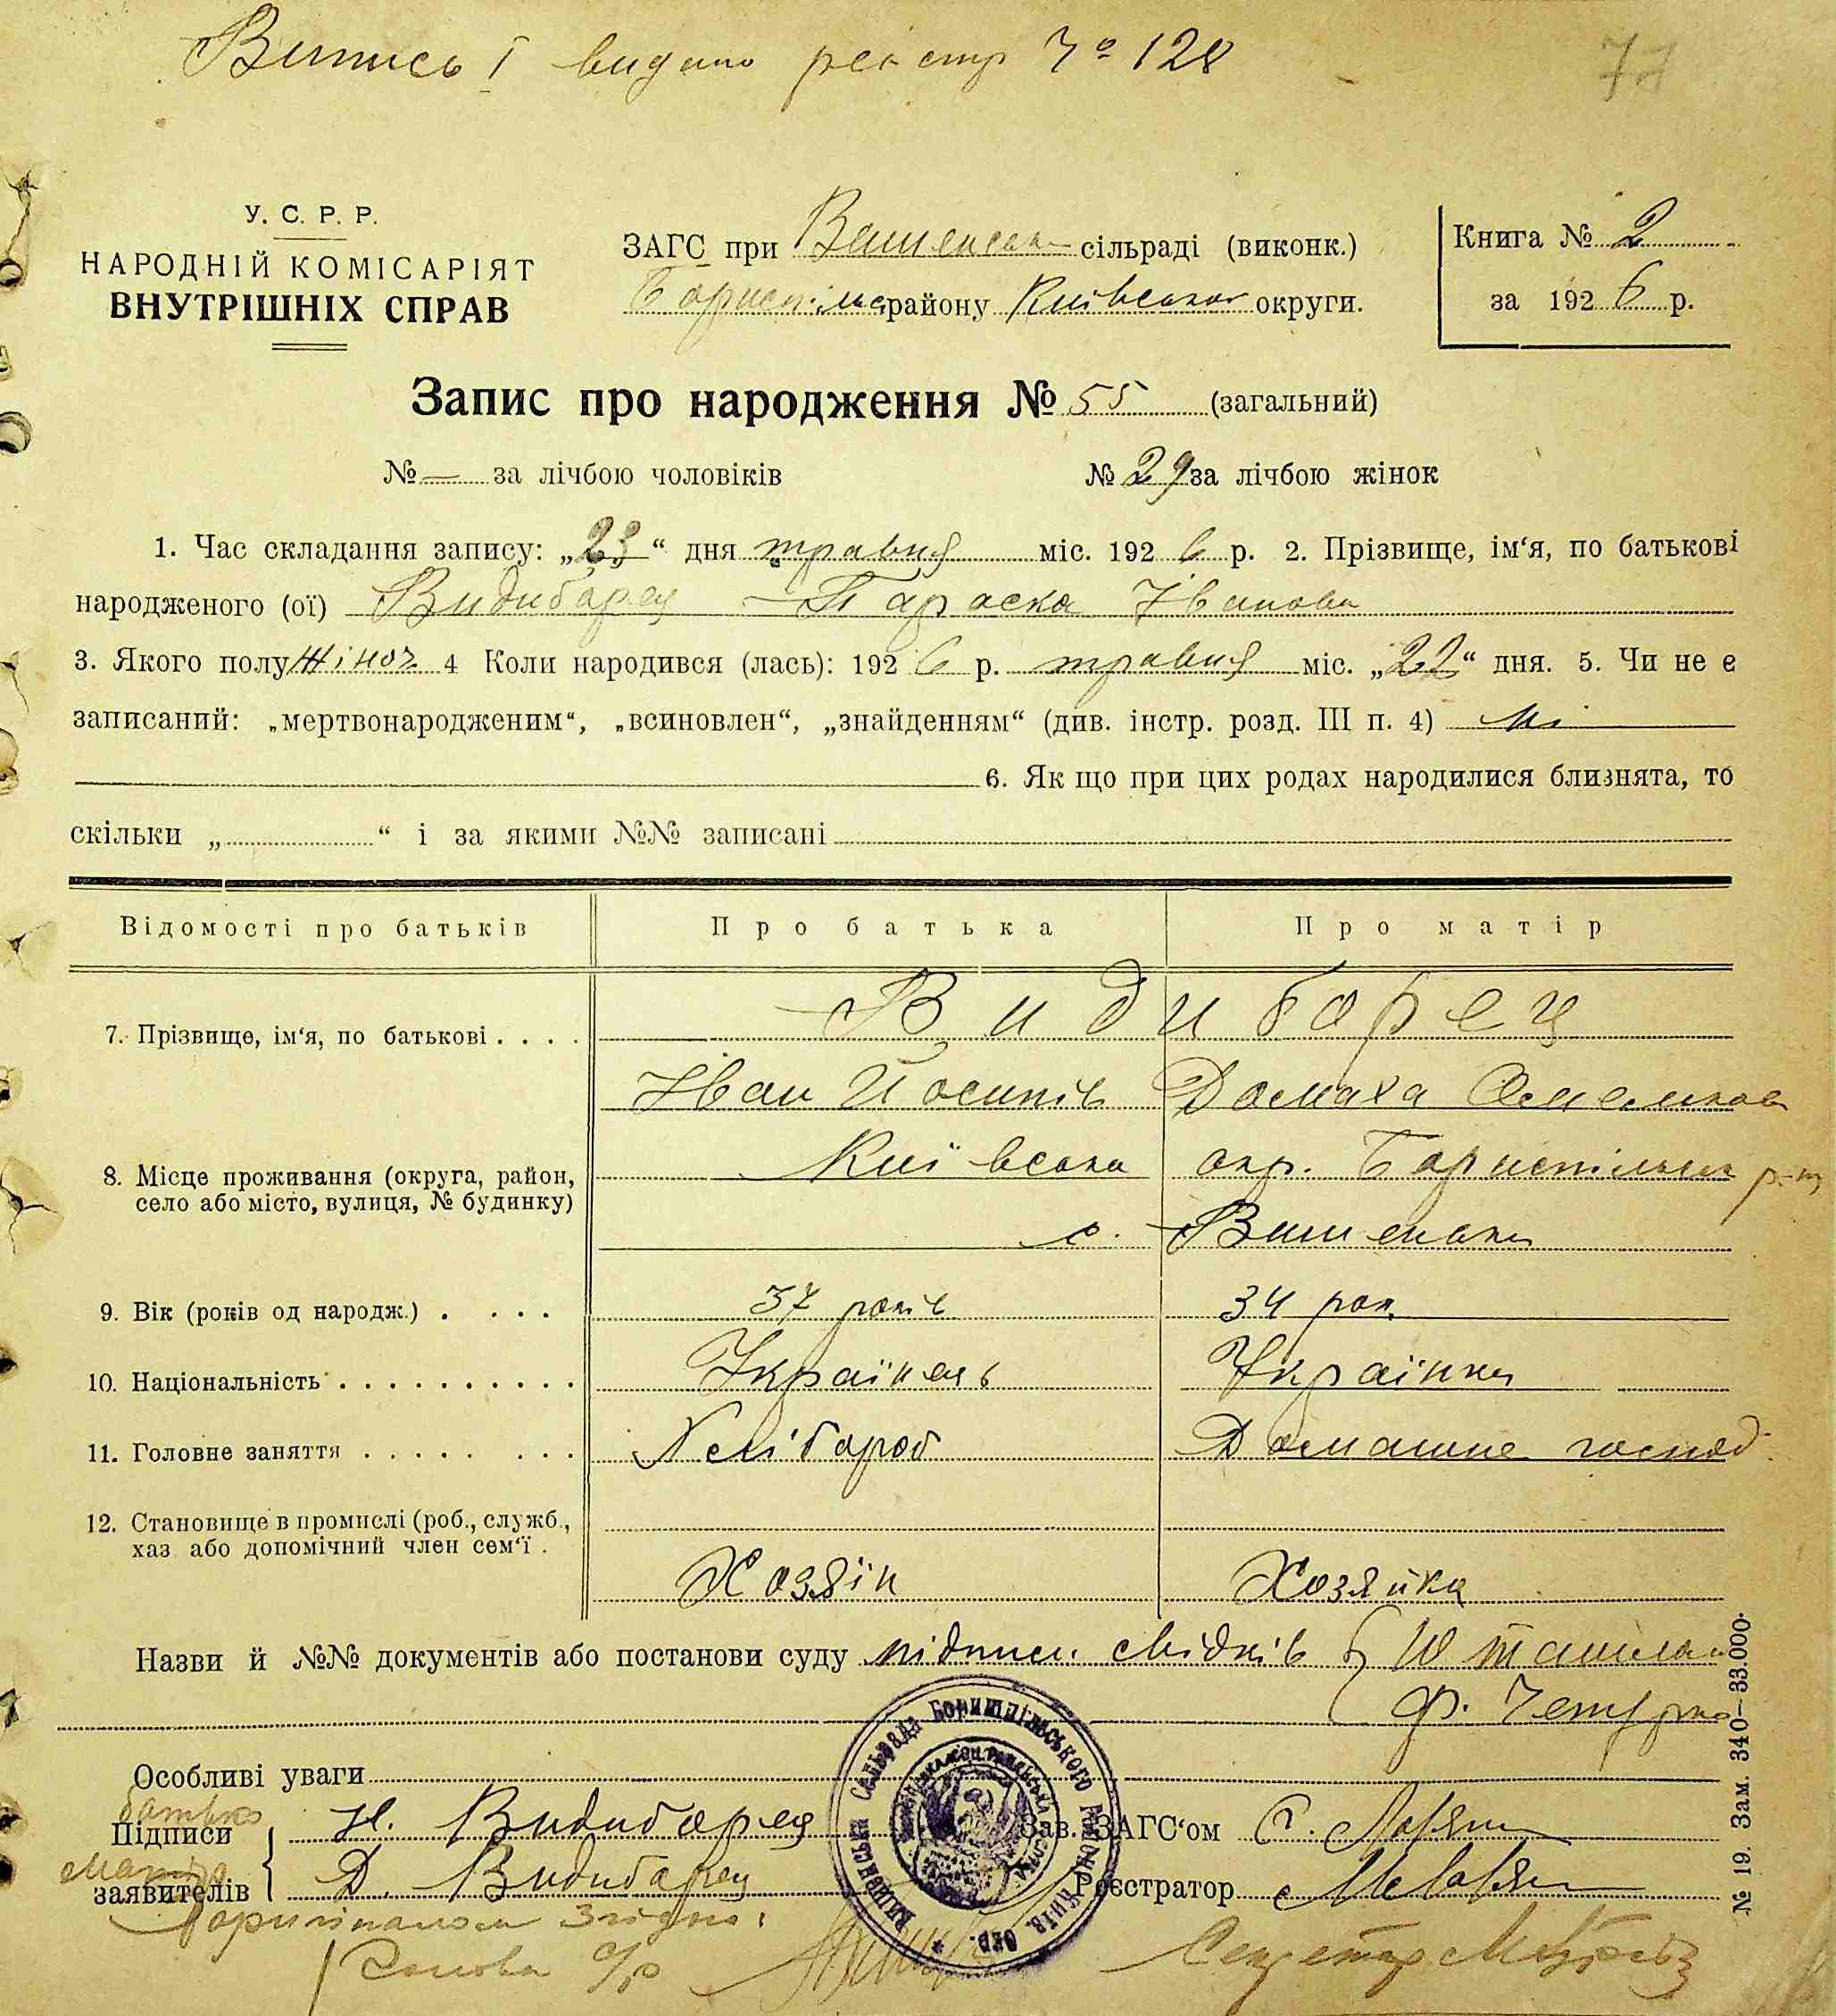 Випись і видано реєстр № 128
77
У. С. Р. Р.
НАРОДНІЙ КОМІСАРІЯТ
ВНУТРІШНІХ СПРАВ
ЗАГС при Вишеньк сільраді (виконк.)
Бориспільс району Київської округи.
Книга № 2
за 1926 р.
Запис про народження № 55 (загальний)
№ — за лічбою чоловіків № 29 за лічбою жінок
1. Час складання запису: „23“ дня травня міс. 1926 р. 2. Прізвище, ім‘я, по батькові
народженого (ої) Видиборец Параска Іванова
3. Якого полу жіноч 4 Коли народився (лась): 1926 р. травня міс. „22“ дня. 5. Чи не є
записаний: „мертвонародженим“, „всиновлен“, „знайденням“ (див. інстр. розд. III п. 4) ні
6. Як що при цих родах народилися близнята, то
скільки „ “ і за якими №№ записані
Відомості про батьків Про батька Про матір
7. Прізвище, ім‘я, по батькові . . . . Видиборец
Іван Йосипів Домаха
8. Місце проживання (округа, район, село або місто, вулиця, № будинку) Київська окр. Бориспільськ р-н
с. Вишеньки
9. Вік (років од народж.) . . . . 37 років 34 рок.
10. Національність . . . . . . . . . . Українець Українка
11. Головне заняття . . . . . . . . Хлібороб Домашне господ.
12. Становище в промислі (роб., служб., хаз або допомічний член сем‘ї .
Хозяїн Хозяйка
Назви й №№ документів або постанови суду підписи свідків
Ф.
Особливі уваги
батько
Підписи Н. Видиборец Зав. ЗАГС‘ом
мати
заявителів Д. Видиборец Реєстратор
З оригіналом згідно:
Голова С/р Секретар
№ 19. Зам. 340—33.000.